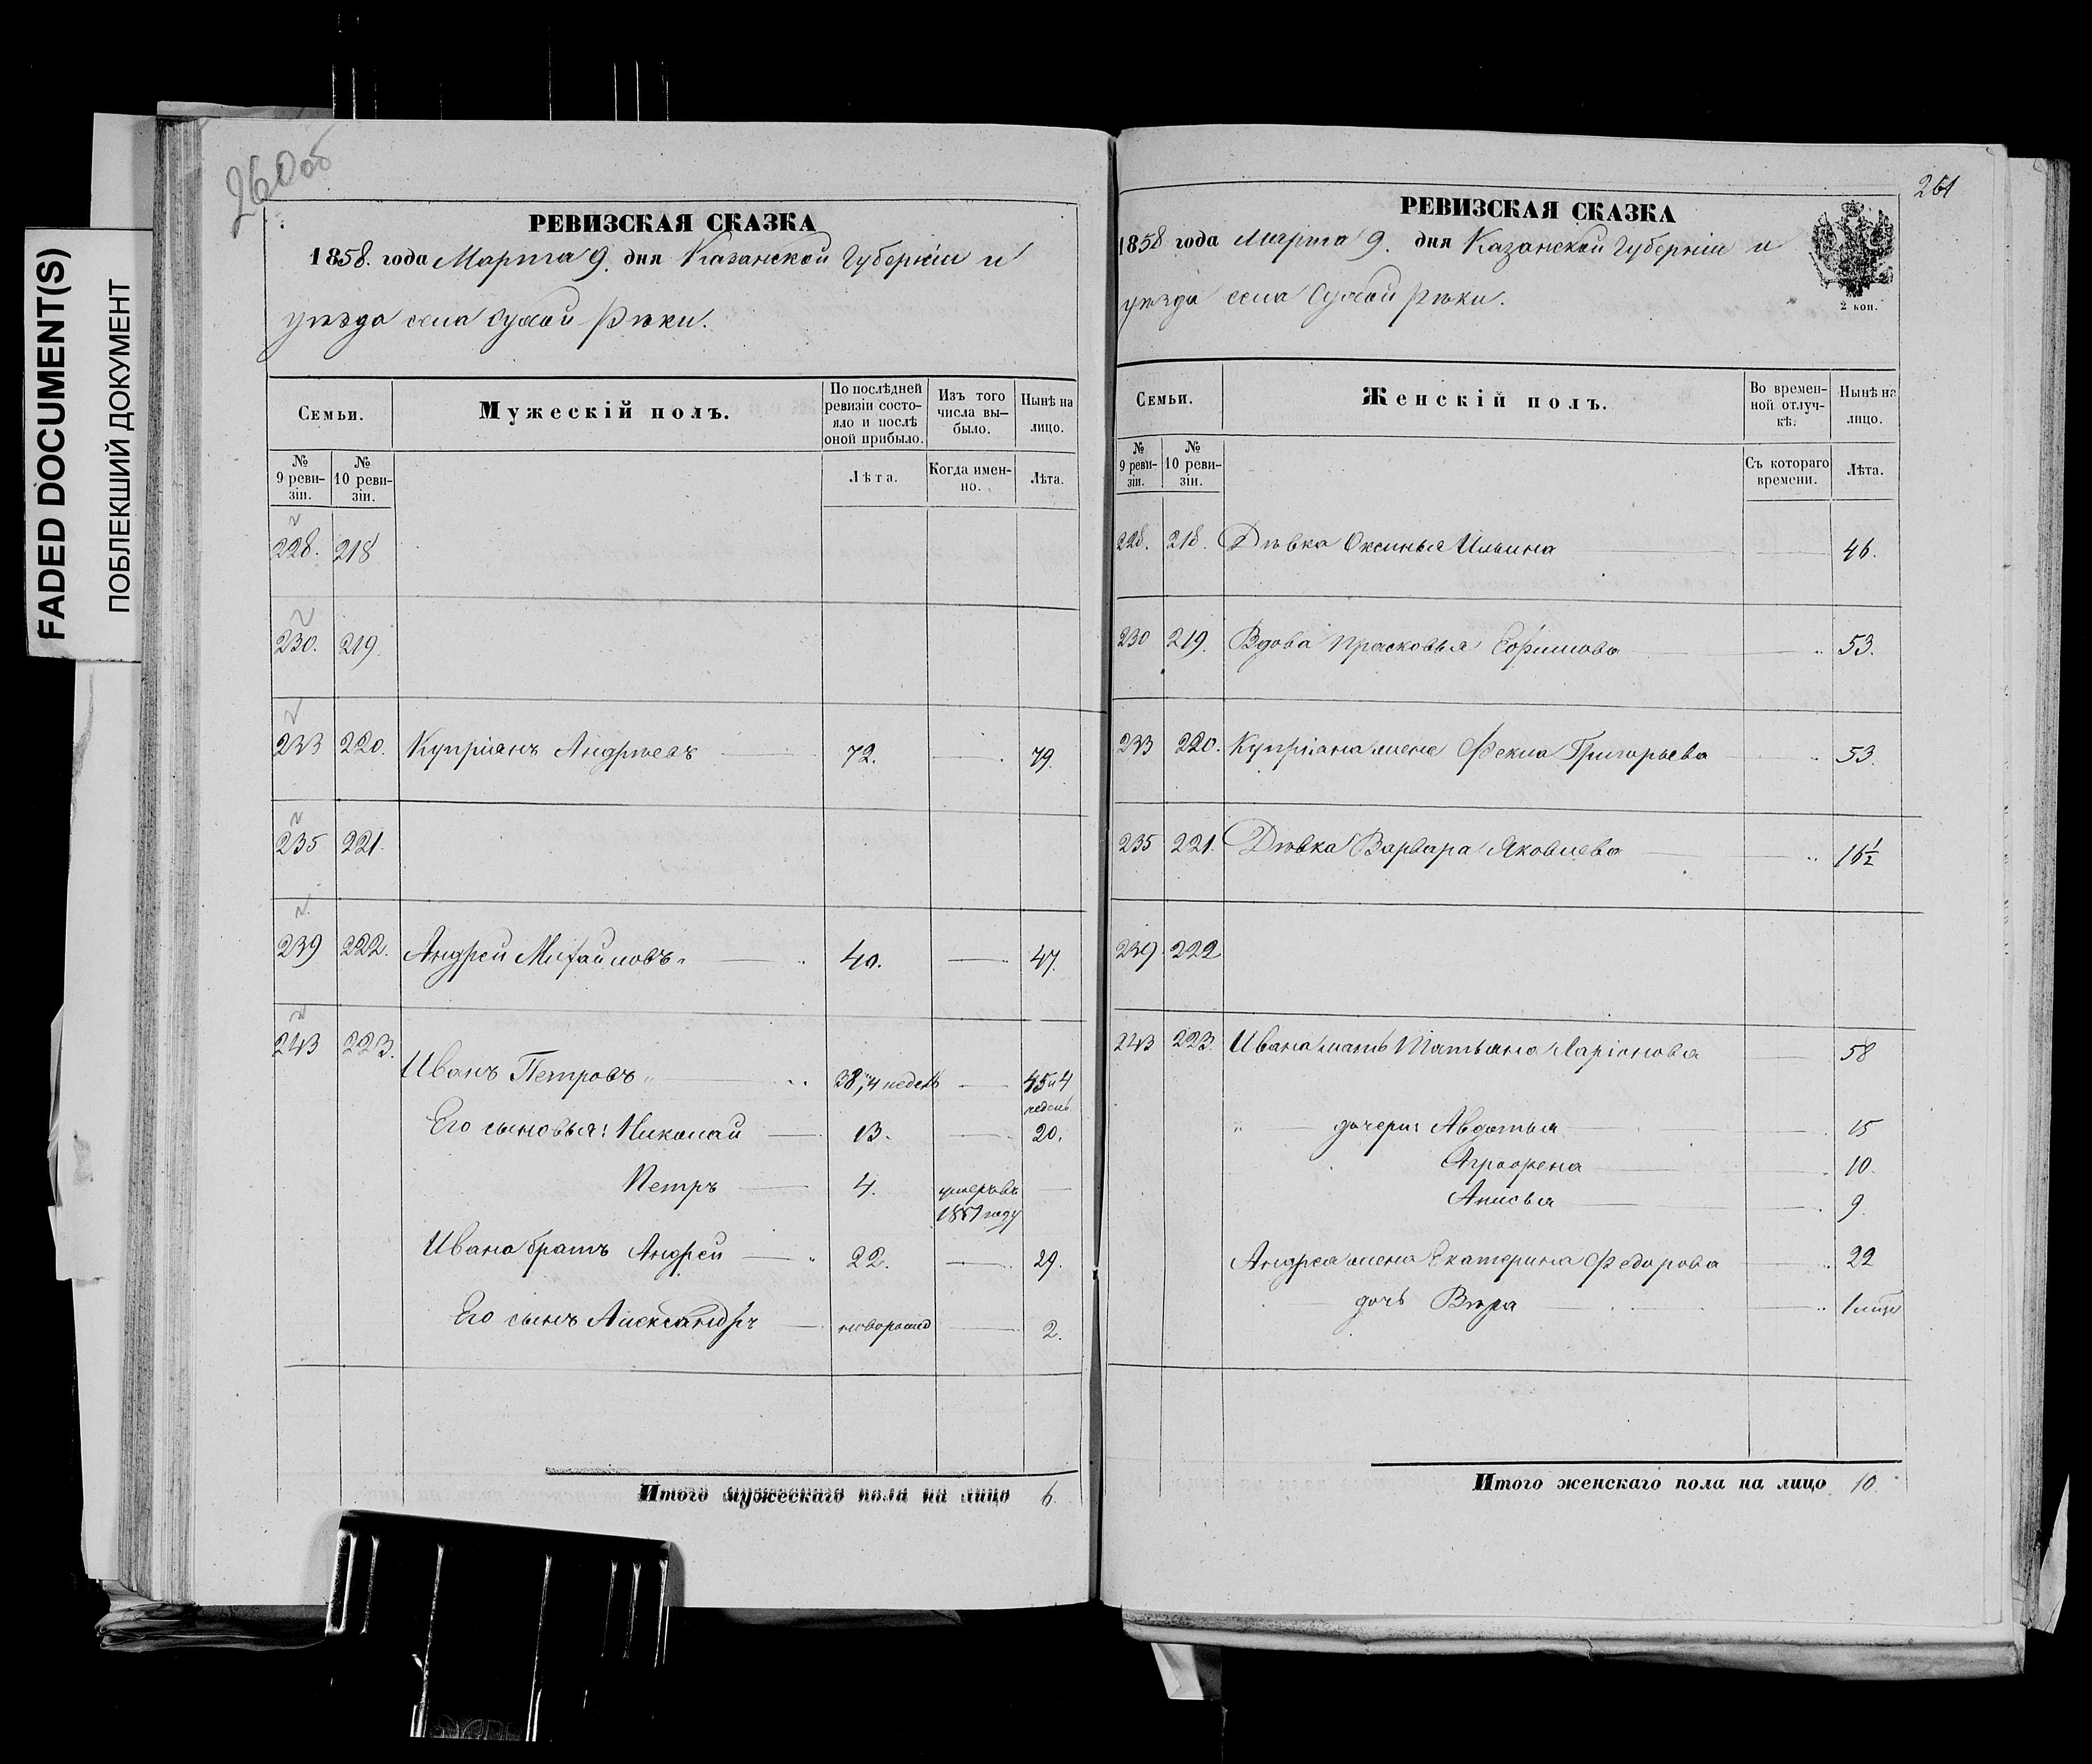 FADED DOCUMENT(S)
ПОБЛЕКШИЙ ДОКУМЕНТ
260об
РЕВИЗСКАЯ СКАЗКА
1858. года Марта 9. дня Казанской Губерніи и
уѣзда села Сухой Рѣки.
Семьи.
Мужескій полъ.
По послѣдней ревизіи состо-
яло и послѣ оной прибыло.
Изъ того числа вы-
было.
Нынѣ на лицо.
№ 9 реви-
зіи.
№ 10 реви-
зіи.
Лѣта.
Когда имен-
но.
Лѣта.
228. 218
230. 219.
233 220. Купріанъ Андрѣевъ 72. 79.
235 221.
239 222. Андрей Михайловъ 40. 47.
243 223.
Иванъ Петровъ 38, 4 недель 45 и 4
недель
Его сыновья: Николай 13. 20.
Петръ 4. умеръ въ
1851 году
Ивана братъ Андрей 22. 29.
Его сынъ Александръ новорожд 2.
Итого мужескаго пола на лицо 6.
261
РЕВИЗСКАЯ СКАЗКА
1858 года Марта 9. дня Казанской Губерніи и
уѣзда села Сухой Рѣки.
2 коп.
Семьи.
Женскій полъ.
Во времен-
ной отлуч-
кѣ.
Нынѣ на лицо.
№ 9 реви-
зіи.
№ 10 реви-
зіи.
Съ котораго времени.
Лѣта.
228. 218. Дѣвка Оксинья Ильина 46.
230 219. Вдова Прасковья Ефимова 53.
233 220. Купріана жена Фекла Григорьева 53.
235 221. Дѣвка Варвара Яковлева 16½
239 222
243 223. Ивана мать Татьяна Ларіонова 58
дочери: Авдотья 15
Аграфена 10.
Анисья 9.
Андрея жена Екатерина Федорова 22
дочь Вѣра
Итого женскаго пола на лицо 10.